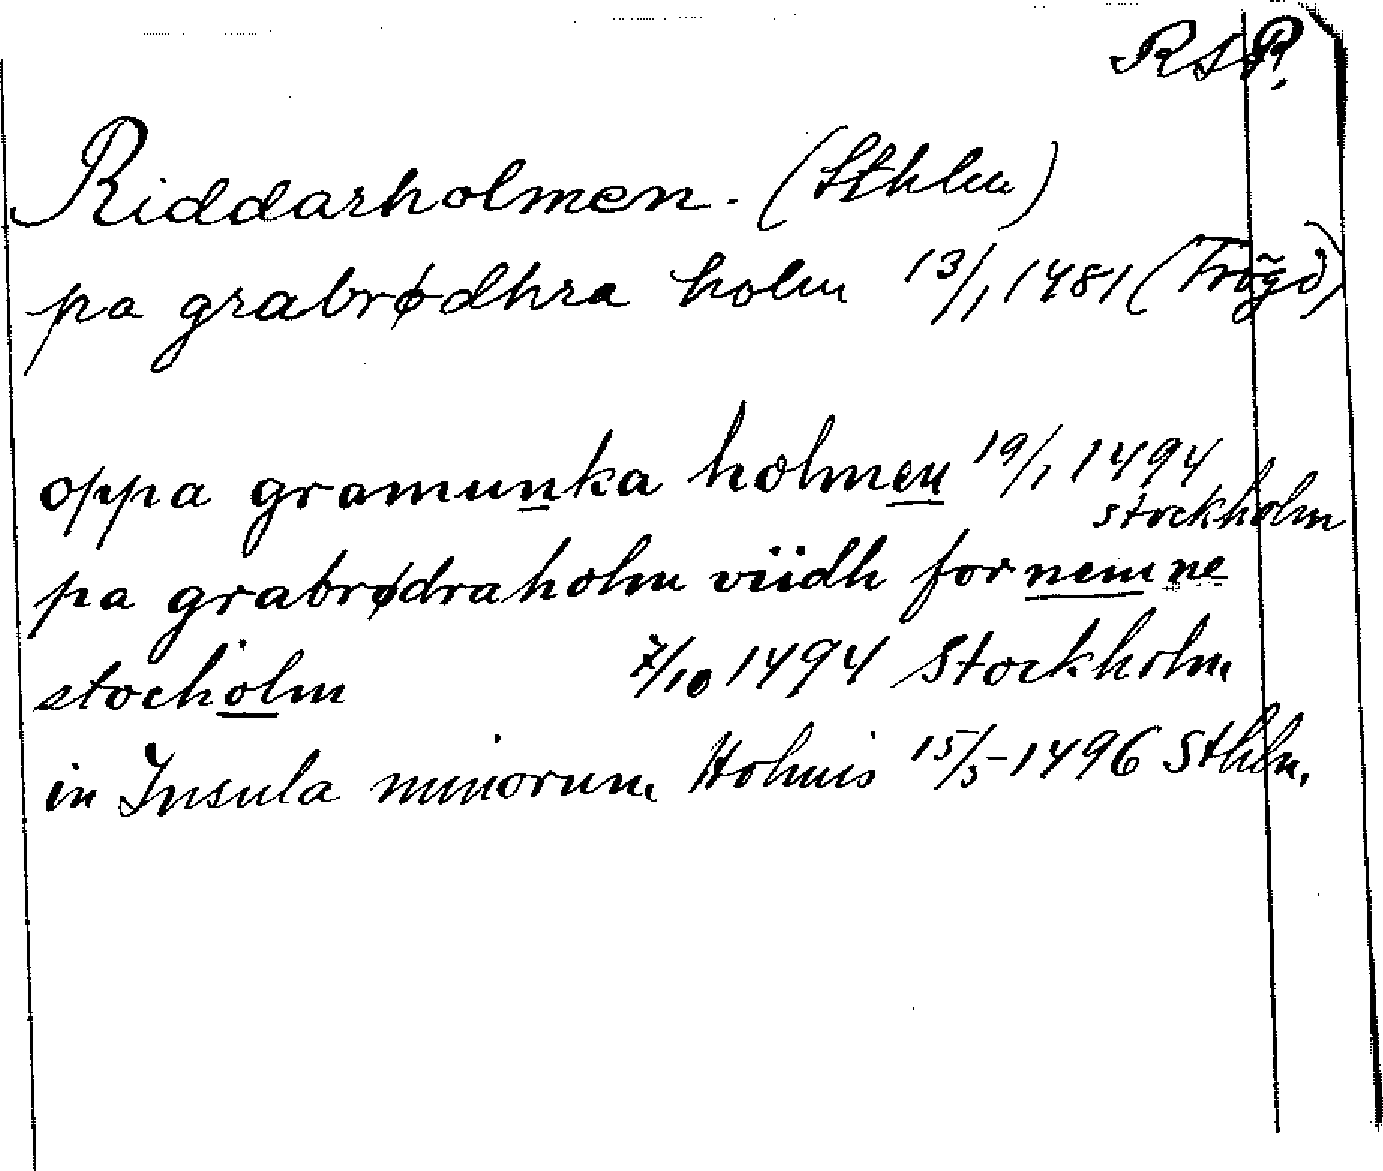 RAP.
Riddarholmen. (Sthlm)
pa grabrødhra holm 13/1 1481 (Trögd)
oppa gramunka holmen 19/1 1494
stockholm
pa grabrødraholm viidh fornemne
stocholm 7/10 1494 Stockholm
in Insula minorum Holmis 15/5 1496 Sthlm.